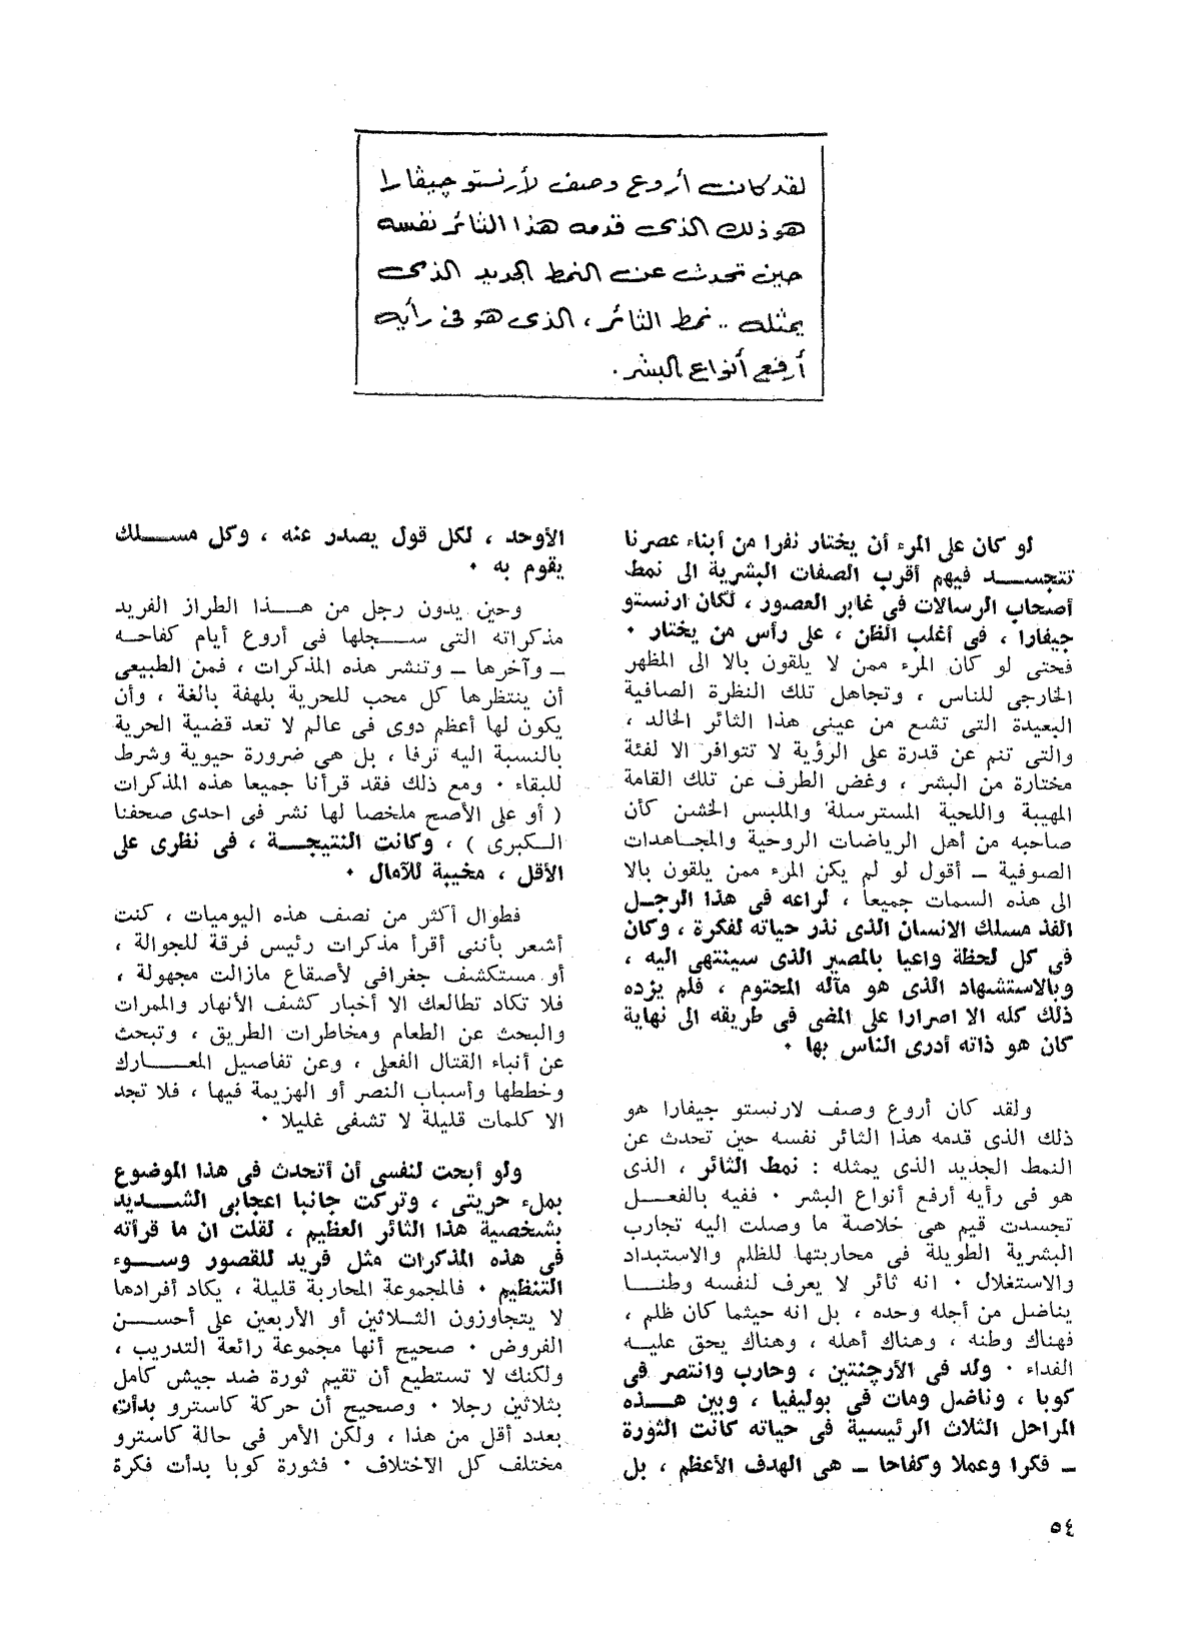 لقد كانت أروع وصف لأرنستو چيڤارا
هو ذلك الذى قدمه هذا الثائر نفسه
حين تحدث عن النمط الجديد الذى
يمثله .. نمط الثائر، الذى هو فى رأيه
أرفع أنواع البشر .
لو كان على المرء أن يختار نفرا من أبناء عصرنا
تتجســــد فيهم أقرب الصفات البشرية الى نمط
أصحاب الرسالات فى غابر العصور ، لكان ارنستو
جيفارا ، فى أغلب الظن ، على رأس من يختار ٠
فحتى لو كان المرء ممن لا يلقون بالا الى المظهر
الخارجى للناس ، وتجاهل تلك النظرة الصافية
البعيدة التى تشع من عينى هذا الثائر الخالد ،
والتى تنم عن قدرة على الرؤية لا تتوافر الا لفئة
مختارة من البشر ، وغض الطرف عن تلك القامة
المهيبة واللحية المسترسلة والملبس الخشن كأن
صاحبه من أهل الرياضات الروحية والمجــاهدات
الصوفية ــ أقول لو لم يكن المرء ممن يلقون بالا
الى هذه السمات جميعا ، لراعه فى هذا الرجــل
الفذ مسلك الانسان الذى نذر حياته لفكرة ، وكان
فى كل لحظة واعيا بالمصير الذى سينتهى اليه ،
وبالاستشهاد الذى هو مآله المحتوم ، فلم يزده
ذلك كله الا اصرارا على المضى فى طريقه الى نهاية
كان هو ذاته أدرى الناس بها ٠
ولقد كان أروع وصف لارنستو جيفارا هو
ذلك الذى قدمه هذا الثائر نفسه حين تحدث عن
النمط الجديد الذى يمثله : نمط الثائر ، الذى
هو فى رأيه أرفع أنواع البشر ٠ ففيه بالفعــــل
تجسدت قيم هى خلاصة ما وصلت اليه تجارب
البشرية الطويلة فى محاربتها للظلم والاستبداد
والاستغلال ٠ انه ثائر لا يعرف لنفسه وطنــــا
يناضل من أجله وحده ، بل انه حيثما كان ظلم ،
فهناك وطنه ، وهناك أهله ، وهناك يحق عليــه
الفداء ٠ ولد فى الأرجنتين ، وحارب وانتصر فى
كوبا ، وناضل ومات فى بوليفيا ، وبين هـــذه
المراحل الثلاث الرئيسية فى حياته كانت الثورة
ــ فكرا وعملا وكفاحا ــ هى الهدف الأعظم ، بل
الأوحد ، لكل قول يصدر عنه ، وكل مســــلك
يقوم به ٠
وحين يدون رجل من هــــذا الطراز الفريد
مذكراته التى ســـجلها فى أروع أيام كفاحــه
ــ وآخرها ــ وتنشر هذه المذكرات ، فمن الطبيعى
أن ينتظرها كل محب للحرية بلهفة بالغة ، وأن
يكون لها أعظم دوى فى عالم لا تعد قضية الحرية
بالنسبة اليه ترفا ، بل هى ضرورة حيوية وشرط
للبقاء ٠ ومع ذلك فقد قرأنا جميعا هذه المذكرات
( أو على الأصح ملخصا لها نشر فى احدى صحفنا
الــكبرى ) ، وكانت النتيجـــة ، فى نظرى على
الأقل ، مخيبة للآمال ٠
فطوال أكثر من نصف هذه اليوميات ، كنت
أشعر بأننى أقرأ مذكرات رئيس فرقة للجوالة ،
أو مستكشف جغرافى لأصقاع مازالت مجهولة ،
فلا تكاد تطالعك الا أخبار كشف الأنهار والممرات
والبحث عن الطعام ومخاطرات الطريق ، وتبحث
عن أنباء القتال الفعلى ، وعن تفاصيل المعـــارك
وخططها وأسباب النصر أو الهزيمة فيها ، فلا تجد
الا كلمات قليلة لا تشفى غليلا ٠
ولو أبحت لنفسى أن أتحدث فى هذا الموضوع
بملء حريتى ، وتركت جانبا اعجابى الشـــديد
بشخصية هذا الثائر العظيم ، لقلت ان ما قرأته
فى هذه المذكرات مثل فريد للقصور وســـوء
التنظيم ٠ فالمجموعة المحاربة قليلة ، يكاد أفرادها
لا يتجاوزون الثــلاثين أو الأربعين على أحســـن
الفروض ٠ صحيح أنها مجموعة رائعة التدريب ،
ولكنك لا تستطيع أن تقيم ثورة ضد جيش كامل
بثلاثين رجلا ٠ وصحيح أن حركة كاسترو بدأت
بعدد أقل من هذا ، ولكن الأمر فى حالة كاسترو
مختلف كل الاختلاف ٠ فثورة كوبا بدأت فكرة
٥٤